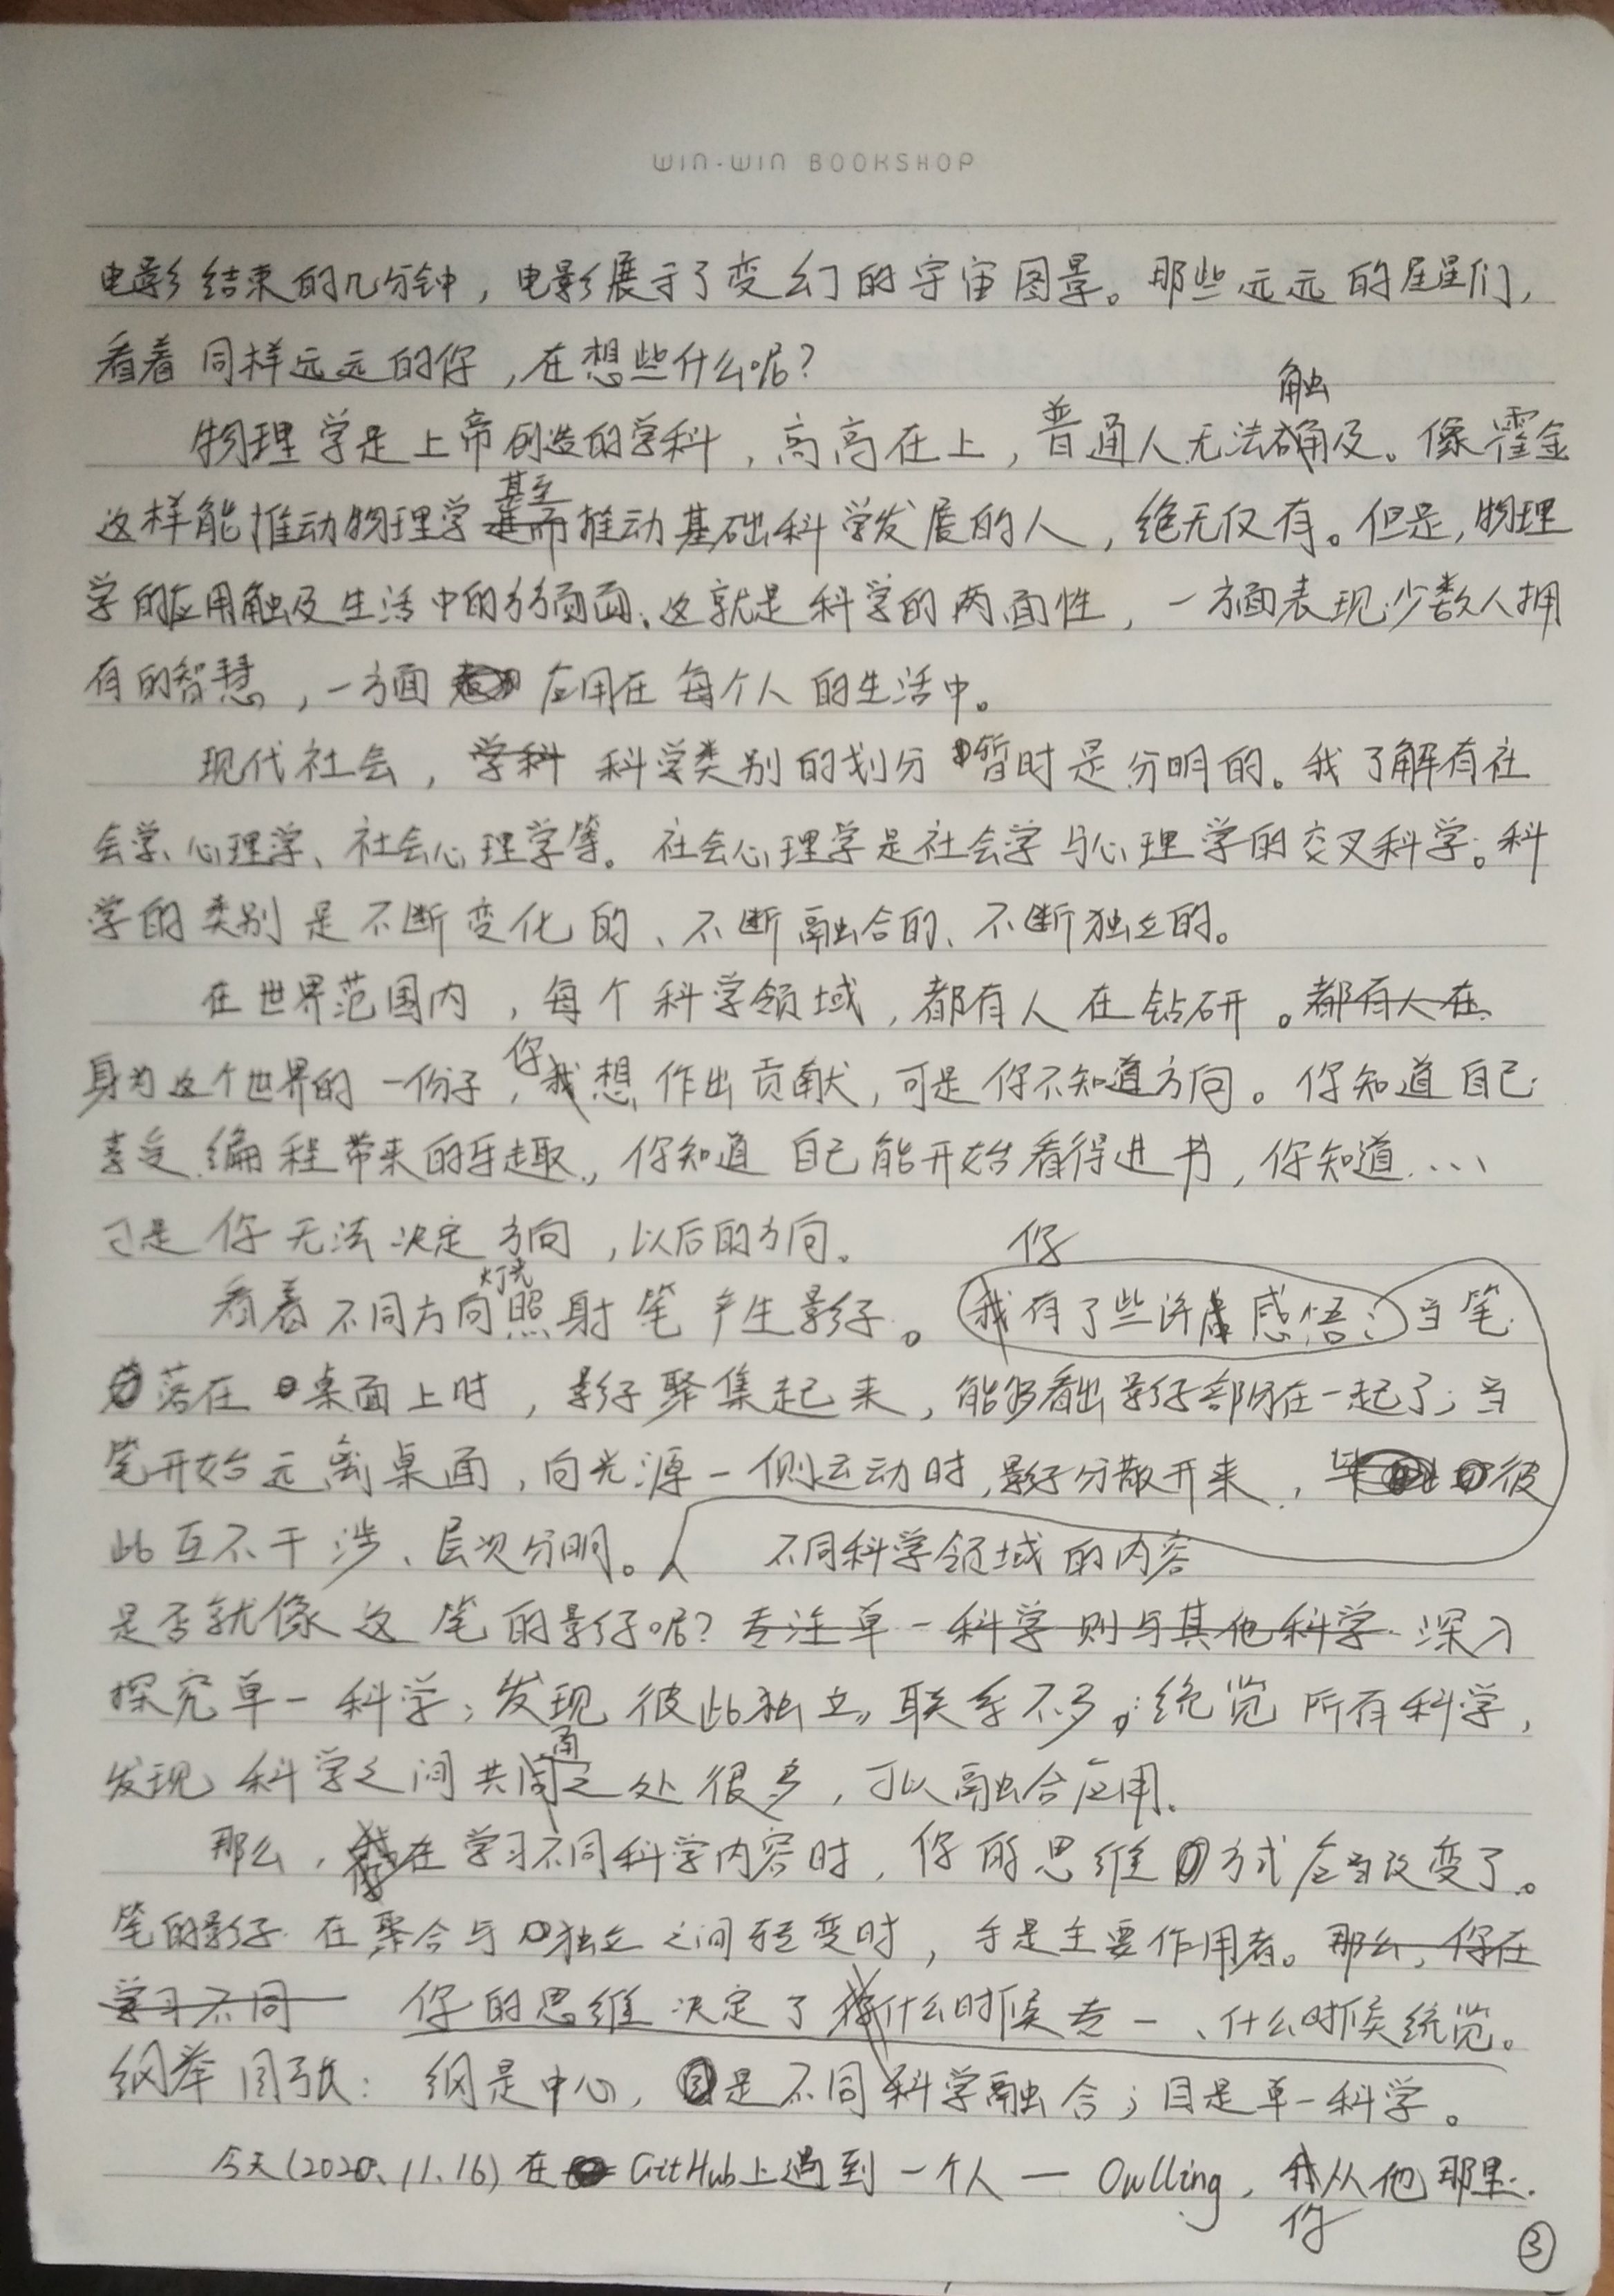 WIN-WIN BOOKSHOP
电影结束的几分钟，电影展示了变幻的宇宙图景。那些远远的星星们，
看着同样远远的你，在想些什么呢？
触
物理学是上帝创造的学科，高高在上，普通人无法确及。像霍金
甚至
这样能推动物理学进而推动基础科学发展的人，绝无仅有。但是，物理
学的应用触及生活中的方方面面。这就是科学的两面性，一方面表现少数人拥
有的智慧，一方面应用在每个人的生活中。
现代社会，学科 科学类别的划分暂时是分明的。我了解有社
会学、心理学、社会心理学等。社会心理学是社会学与心理学的交叉科学。科
学的类别是不断变化的、不断融合的、不断独立的。
在世界范围内，每个科学领域，都有人在钻研。都有人在
你
身为这个世界的一份子，我想作出贡献，可是你不知道方向。你知道自己
享受编程带来的乐趣，你知道自己能开始看得进书，你知道…
可是你无法决定方向，以后的方向。
你
灯光
看着不同方向照射笔产生影子。我有了些许感悟：当笔
落在桌面上时，影子聚集起来，能够看出影子部分在一起了；当
笔开始远离桌面，向光源一侧运动时，影子分散开来，彼
此互不干涉、层次分明。 不同科学领域的内容
是否就像这笔的影子呢？专注单一科学则与其他科学 深入
探究单一科学；发现彼此独立，联系不多；统览所有科学，
发现科学之间共同之处很多，可以融合应用。
那么，在学习不同科学内容时，你的思维方式应当改变了。
笔的影子在聚合与独立之间转变时，手是主要作用者。那么，你在
学习不同 你的思维决定了什么时候专一、什么时候统览。
纲举目张：纲是中心，是不同科学融合；目是单一科学。
今天(2020.11.16)在GitHub上遇到一个人 — Owlling，我从他那里
你
③